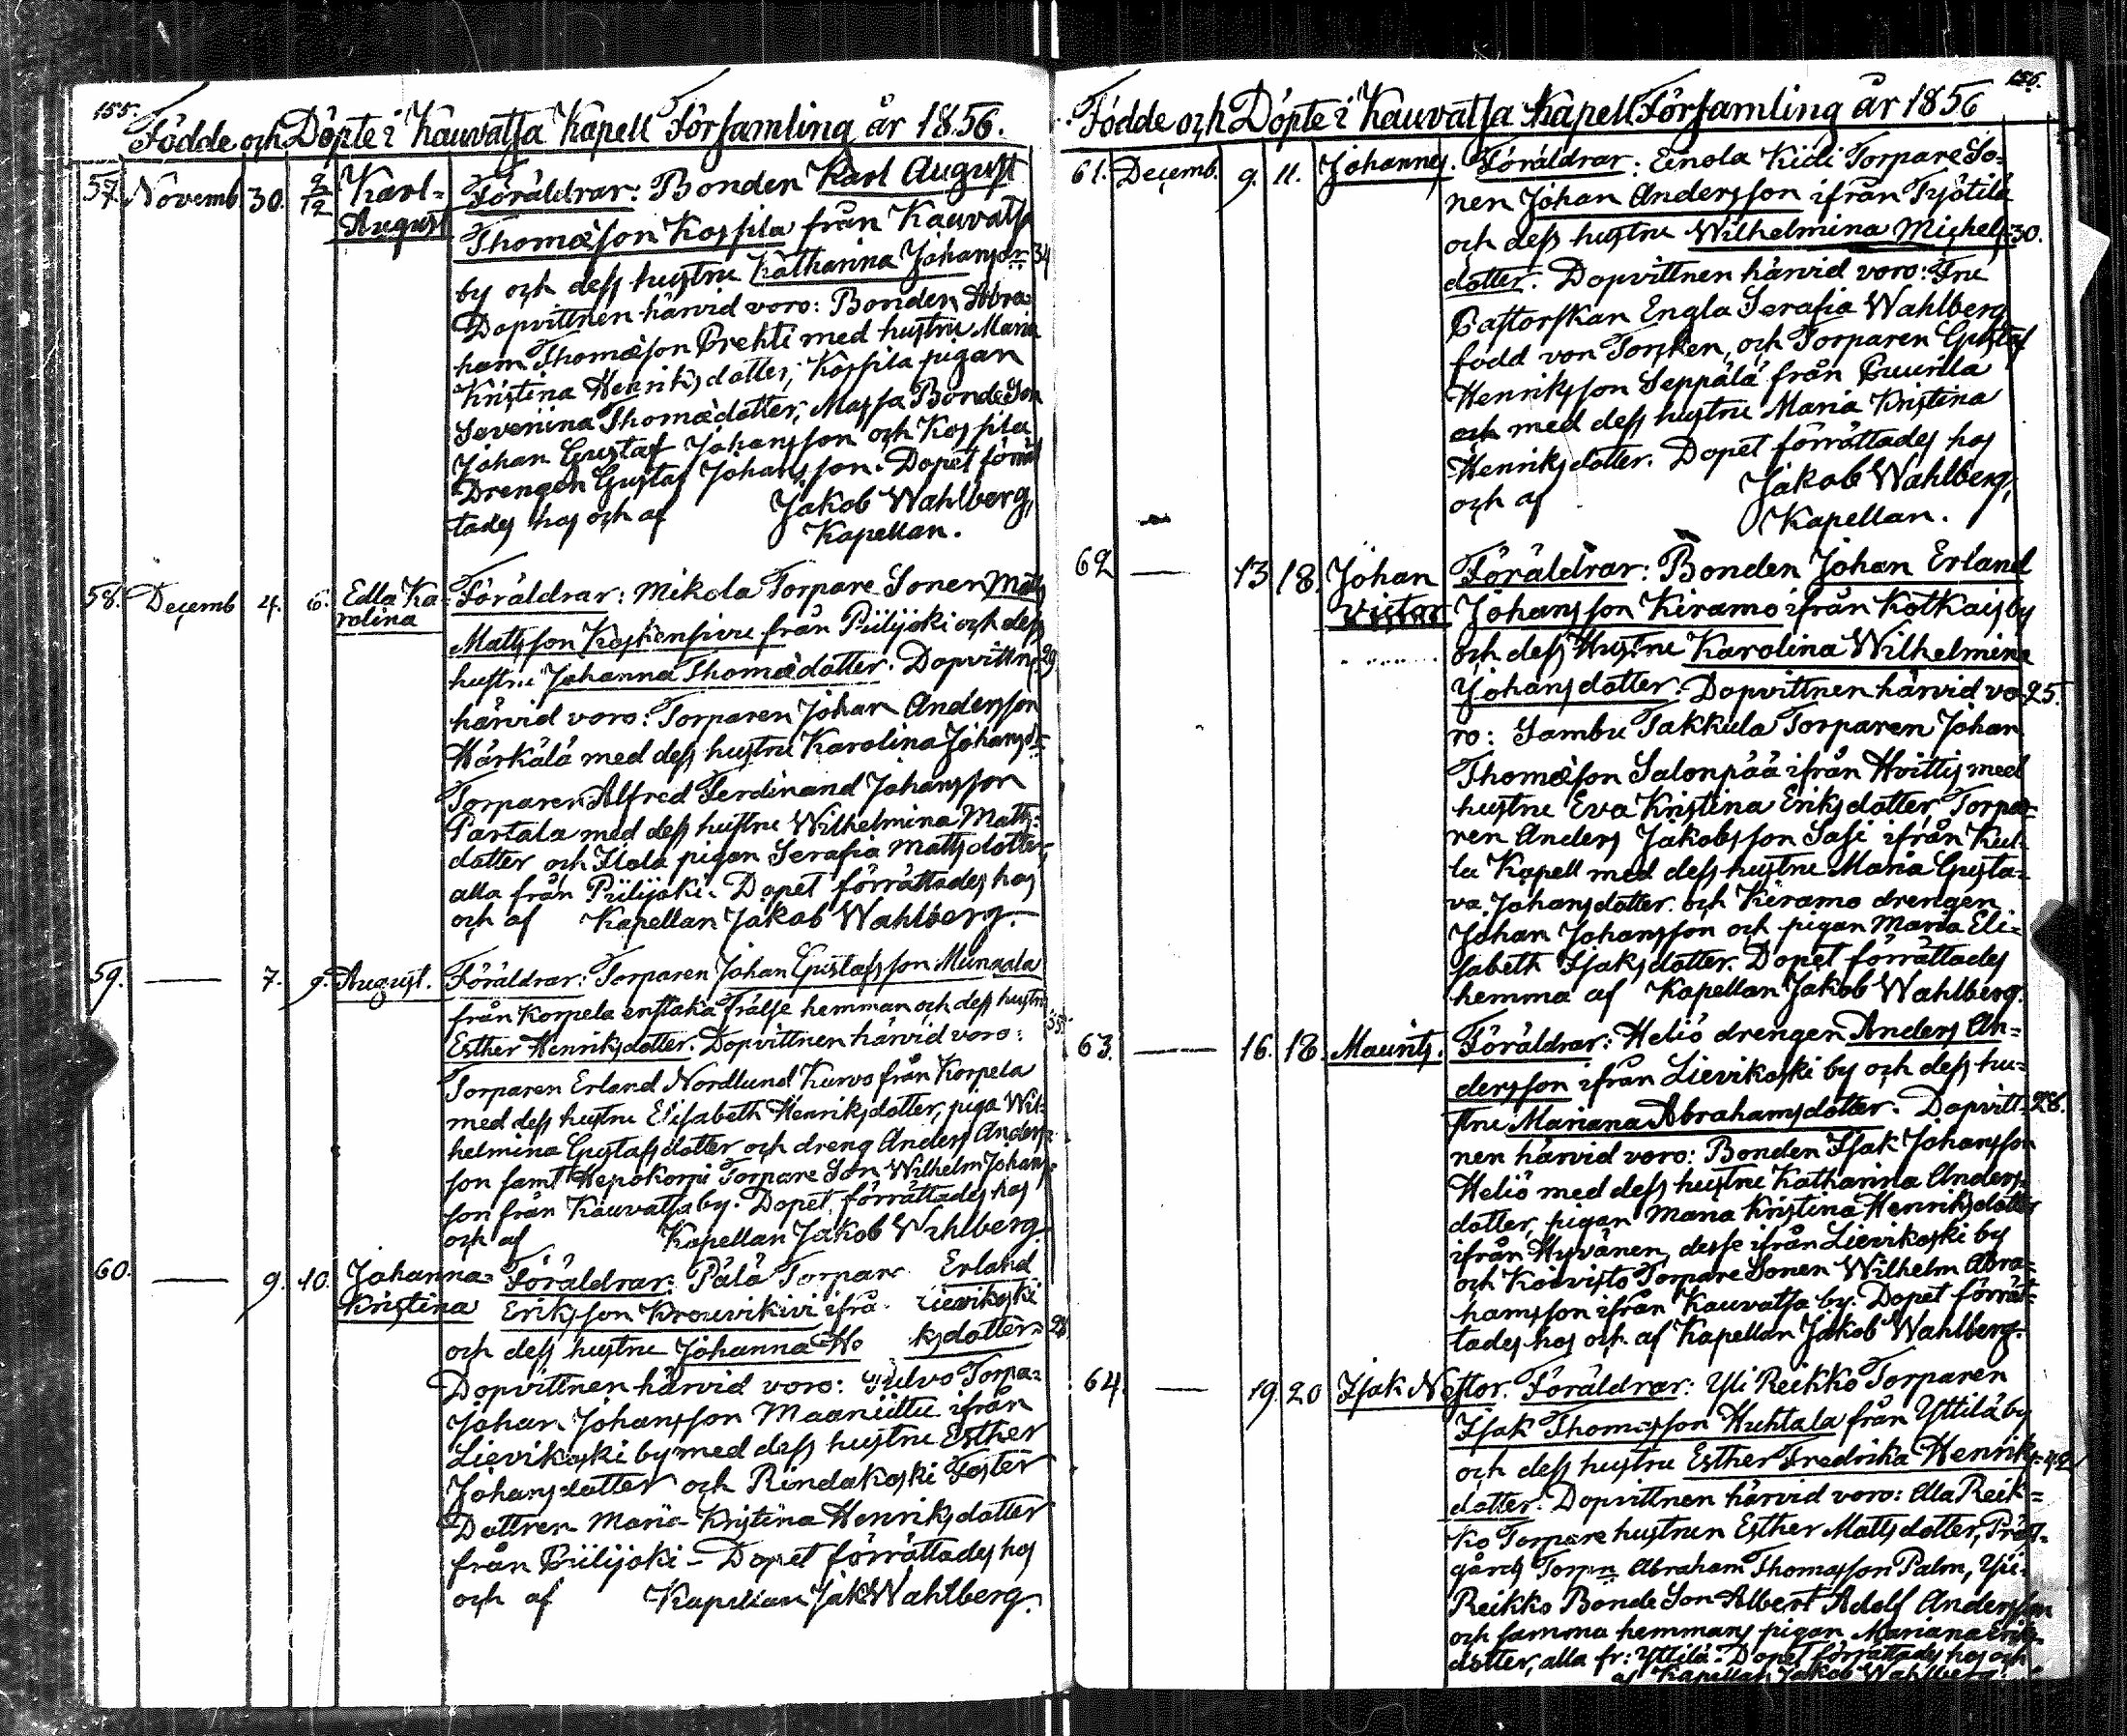 155.
Födde och Döpte i Kauvatsa Kapell Församling år 1856.
57. Novemb. 30. 2/12 Karl- Föräldrar: Bonden Karl August
August Thomæson Kospila från Kauvatsa
by och dess hustru Katharina Johansdr. 34
Dopvittnen härvid voro: Bonden Abra-
ham Thomæson Prehti med hustru Maria
Kristina Henriksdotter, Kospila pigan
Severiina Thomædotter, Massa Bonde Son
Johan Gustaf Johansson och Kospila
Drengen Gustaf Johansson. Dopet förrät
tades hos och af Jakob Wahlberg,
Kapellan.
58. Decemb 4. 6. Edla Ka- Föräldrar: Mikola Torpare Sonen Matts
rolina Mattsson Koskensivu från Piilijoki och dess
hustru Johanna Thomædotter. Dopvittn 29
härvid voro: Torparen Johan Andersson
Härkälä med dess hustru Karolina Johansdr.
Torparen Alfred Ferdinand Johansson
Partala med dess hustru Wilhelmina Matts-
dotter och Ilola pigan Serafia Mattsdotter,
alla från Piilijoki. Dopet förrättades hos
och af Kapellan Jakob Wahlberg.
59. — 7. 9. August. Föräldrar: Torparen Johan Gustafsson Munaala
från Korpela enstaka Frälse hemman och dess hustru
Esther Henriksdotter. Dopvittnen härvid voro:
Torparen Erland Nordlund Kurvo från Korpela
med dess hustru Elisabeth Henriksdotter, piga Wil-
helmina Gustafsdotter och dreng Anders Anders-
son samt Hepokorpi Torpare Son Wilhelm Johans-
son från Kauvatsa by. Dopet förrättades hos
och af Kapellan Jakob Wahlberg.
60. — 9. 10. Johanna- Föräldrar: Pälä Torpare Erland
Kristina Eriksson Krouvikivi ifrå Lievikoski
och dess hustru Johanna He ksdotter. 28
Dopvittnen härvid voro: Torpa-
Johan Johansson Maaniittu ifrån
Lievikoski by med dess hustru Esther
Johansdotter och Rindakoski Foster
Dottren Maria Kristina Henriksdotter
från Piilijoki - Dopet förrättades hos
och af Kapellan Jak Wahlberg.
156.
Födde och Döpte i Kauvatsa Kapell Församling år 1856
61. Decemb. 9. 11. Johannes. Föräldrar: Einola Kidi Torpare So-
nen Johan Andersson ifrån Työtilä
och dess hustru Wilhelmina Michels- 30.
dotter. Dopvittnen härvid voro: Fru
Pastorskan Engla Serafia Wahlberg
född von Torcken, och Torparen Gustaf
Henriksson Seppälä från Puurila
och med dess hustru Maria Kristina
Henriksdotter. Dopet förrättades hos
och af Jakob Wahlberg,
Kapellan.
62 — 13 18. Johan Föräldrar: Bonden Johan Erland
Victor Johansson Keramo ifrån Kotkais by
och dess Hustru Karolina Wilhelmina
Johansdotter. Dopvittnen härvid vo- 25.
ro: Sambu Takkula Torparen Johan
Thomæson Salonpää ifrån Hvittis med
hustru Eva Kristina Eriksdotter, Torpa-
ren Anders Jakobsson Sasi ifrån Kul-
la Kapell med dess hustru Maria Gusta-
va Johansdotter och Keramo drengen
Johan Johansson och pigan Maria Eli-
sabeth Isaksdotter. Dopet förrättades
hemma af Kapellan Jakob Wahlberg.
63. — 16. 18 Maurits. Föräldrar: Heliö drengen Anders An-
dersson ifrån Lievikoski by och dess hu-
stru Mariana Abrahamsdotter. Dopvitt- 28.
nen härvid voro: Bonden Isak Johansson
Heliö med dess hustru Katharina Anders-
dotter, pigan Maria Kristina Henriksdotter
ifrån Hyvänen, desse ifrån Lievikoski by
och Koivisto Torpare Sonen Wilhelm Abra-
hamsson ifrån Kauvatsa by. Dopet förrät-
tades hos och af Kapellan Jakob Wahlberg.
64. — 19. 20 Isak Nestor. Föräldrar: Yli Reikko Torparen
Isak Thomasson Huhtala från Yttilä by
och dess hustru Esther Fredrika Henriks- 42
dotter. Dopvittnen härvid voro: Ala Reik-
ko Torpare hustrun Esther Mattsdotter, Präst-
gårds Torpn Abraham Thomasson Palm, Yli-
Reikko Bonde Son Albert Adolf Andersson
och samma hemmans pigan Mariana Eriks-
dotter, alla fr: Yttilä. Dopet förrättades hos och
af Kapellan Jakob Wahlberg.